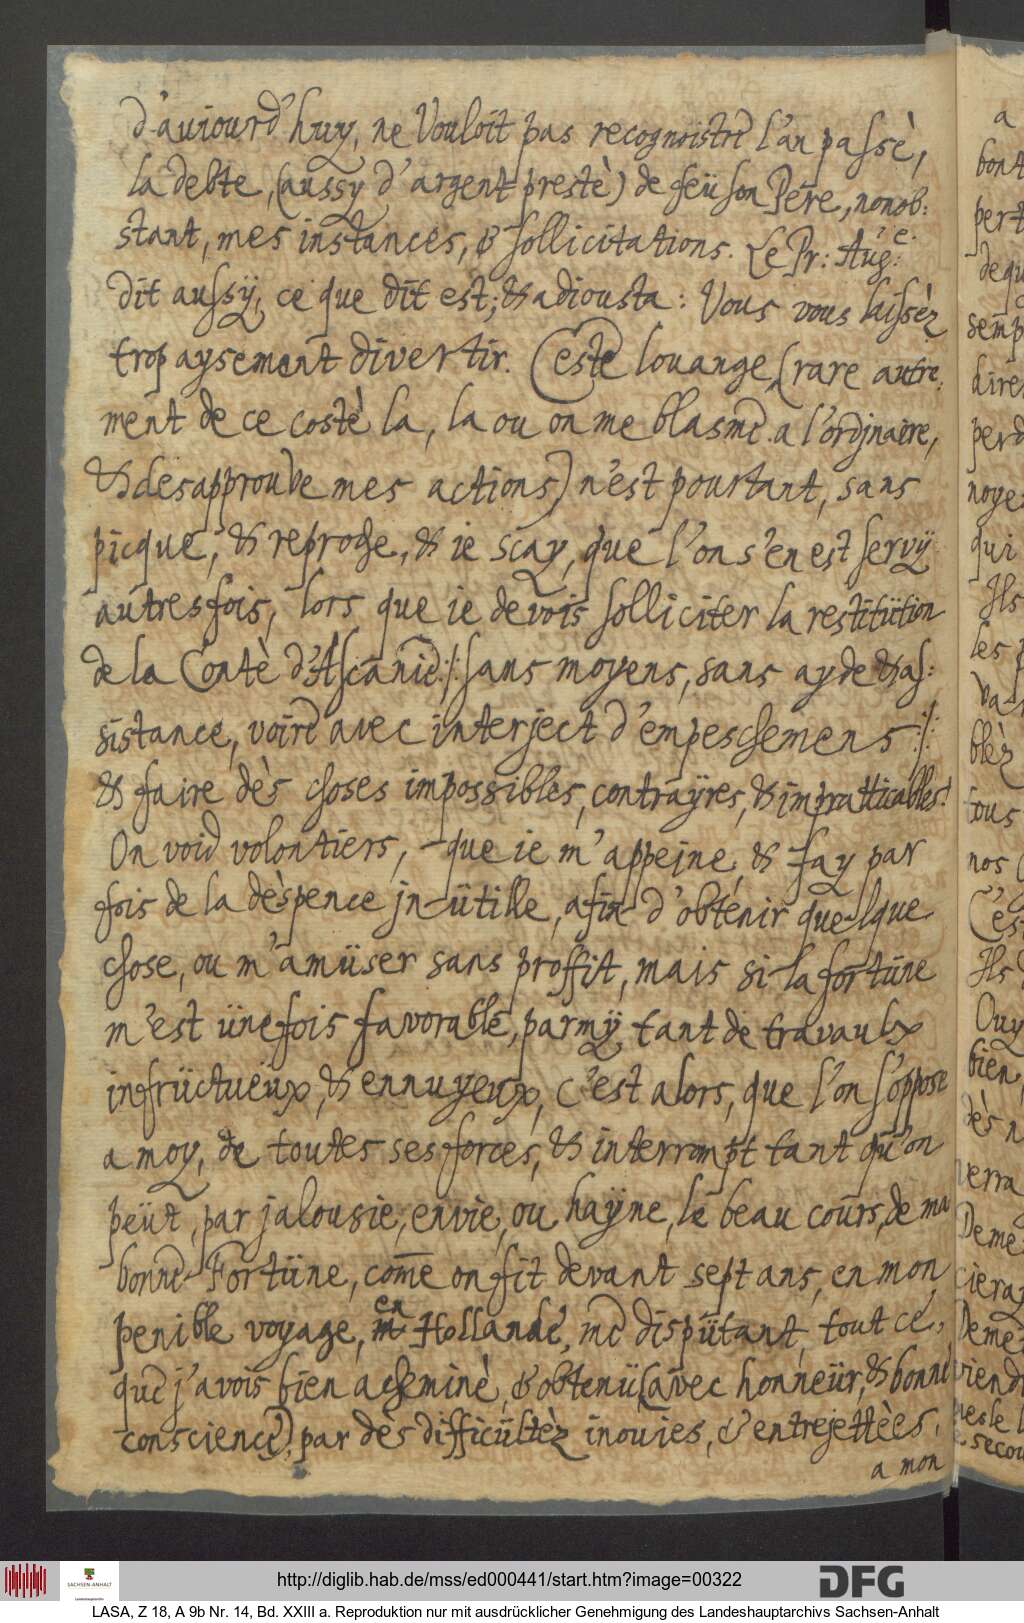 d'aujourd'huy, ne Vouloit pas recognoistre l'an passè,
la debte, (aussy d'argent prestè) de feü son Pere, nonob:
stant, mes instances, & sollicitations. Le Pr: Aug:e.
dit aussÿ, ce que dit est; & adiousta: Vous vous laissèz
trop aysement divertir. Ceste louange (rare autre:
ment de ce costè la, la ou on me blasme a l'ordjnaire,
& desapprouve mes actions) n'est pourtant, sans
picque, & reproche, & ie scay, que l'on s'en est servÿ
autresfois, lors que ie devois solliciter la restitütion
de la Contè d'Ascanie :/: sans moyens, sans ayde & as:
sistance, voire avec interject d'empeschemens :/:
& faire dès choses impossibles, contraÿres, & impratticables!
On void volontiers, que ie m'appejne & fay par
fois de la dèspence jn-ütille, afin d'obtenir quelque
chose, ou m'amüser sans proffit, mais si la fortüne
m'est üne fois favorable, parmÿ tant de travaulx
infrüctueüx, & ennuyeux, c'est alors, que l'on s'oppose
a moy, de toutes ses forces, & interrompt tant qu'on
peüt, par jalousie, envie, ou haÿne, le beau cours, de ma
bonne Fortüne, come on fit devant sept ans, en mon
penible voyage, en Hollande, me dispütant, tout ce,
que j'avois bien acheminè, & obtenü (avec honneür, & bonne
conscience), par dès difficültèz inouies, & entrejettèes,
a mon
http://diglib.hab.de/mss/ed000441/start.htm?image=00322
SACHSEN-ANHALT
DFG
LASA, Z 18, A 9b Nr. 14, Bd. XXIII a. Reproduktion nur mit ausdrücklicher Genehmigung des Landeshauptarchivs Sachsen-Anhalt